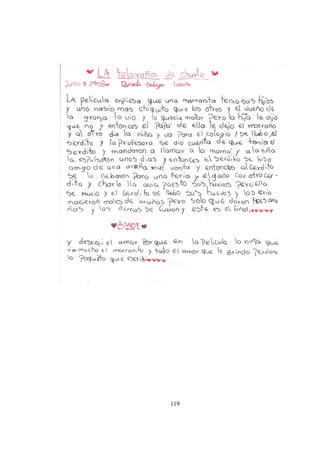 LA telaraña de charlo
Junio 3 2008
LA película empiesa que una marranita tenia sus hijos
y uno nasio mas chiquito que los otros y el dueño de
la granja lo vio y lo queria matar pero la hija le dijo
que no y entonces el papa de ella le dejo el marrano
y al otro dia la niña y va para el colegio / se llebo el
serdito y la profesora se dio cuenta de que tenia el
serdito y mandaron a llamar a la mama y a la niña
la unos dias y entonces el serdito se iso
amigo de una araña muy vonita y entonces al serdito
se lo llebaron para una feria y el gano con otro cer-
dito y charlo lla avia puesto sus huevos pero ella
se murio y el serdito se llebo sus huevos y los
nacieron males de arañas pero solo que daron tres ara
ñas y las demas se fueron y este es el final
AMOR
y descoji el amor porque en la película la niña que
ria mucho el marranito y todo el amor que le brindo perdone
lo poquito que escribi
119